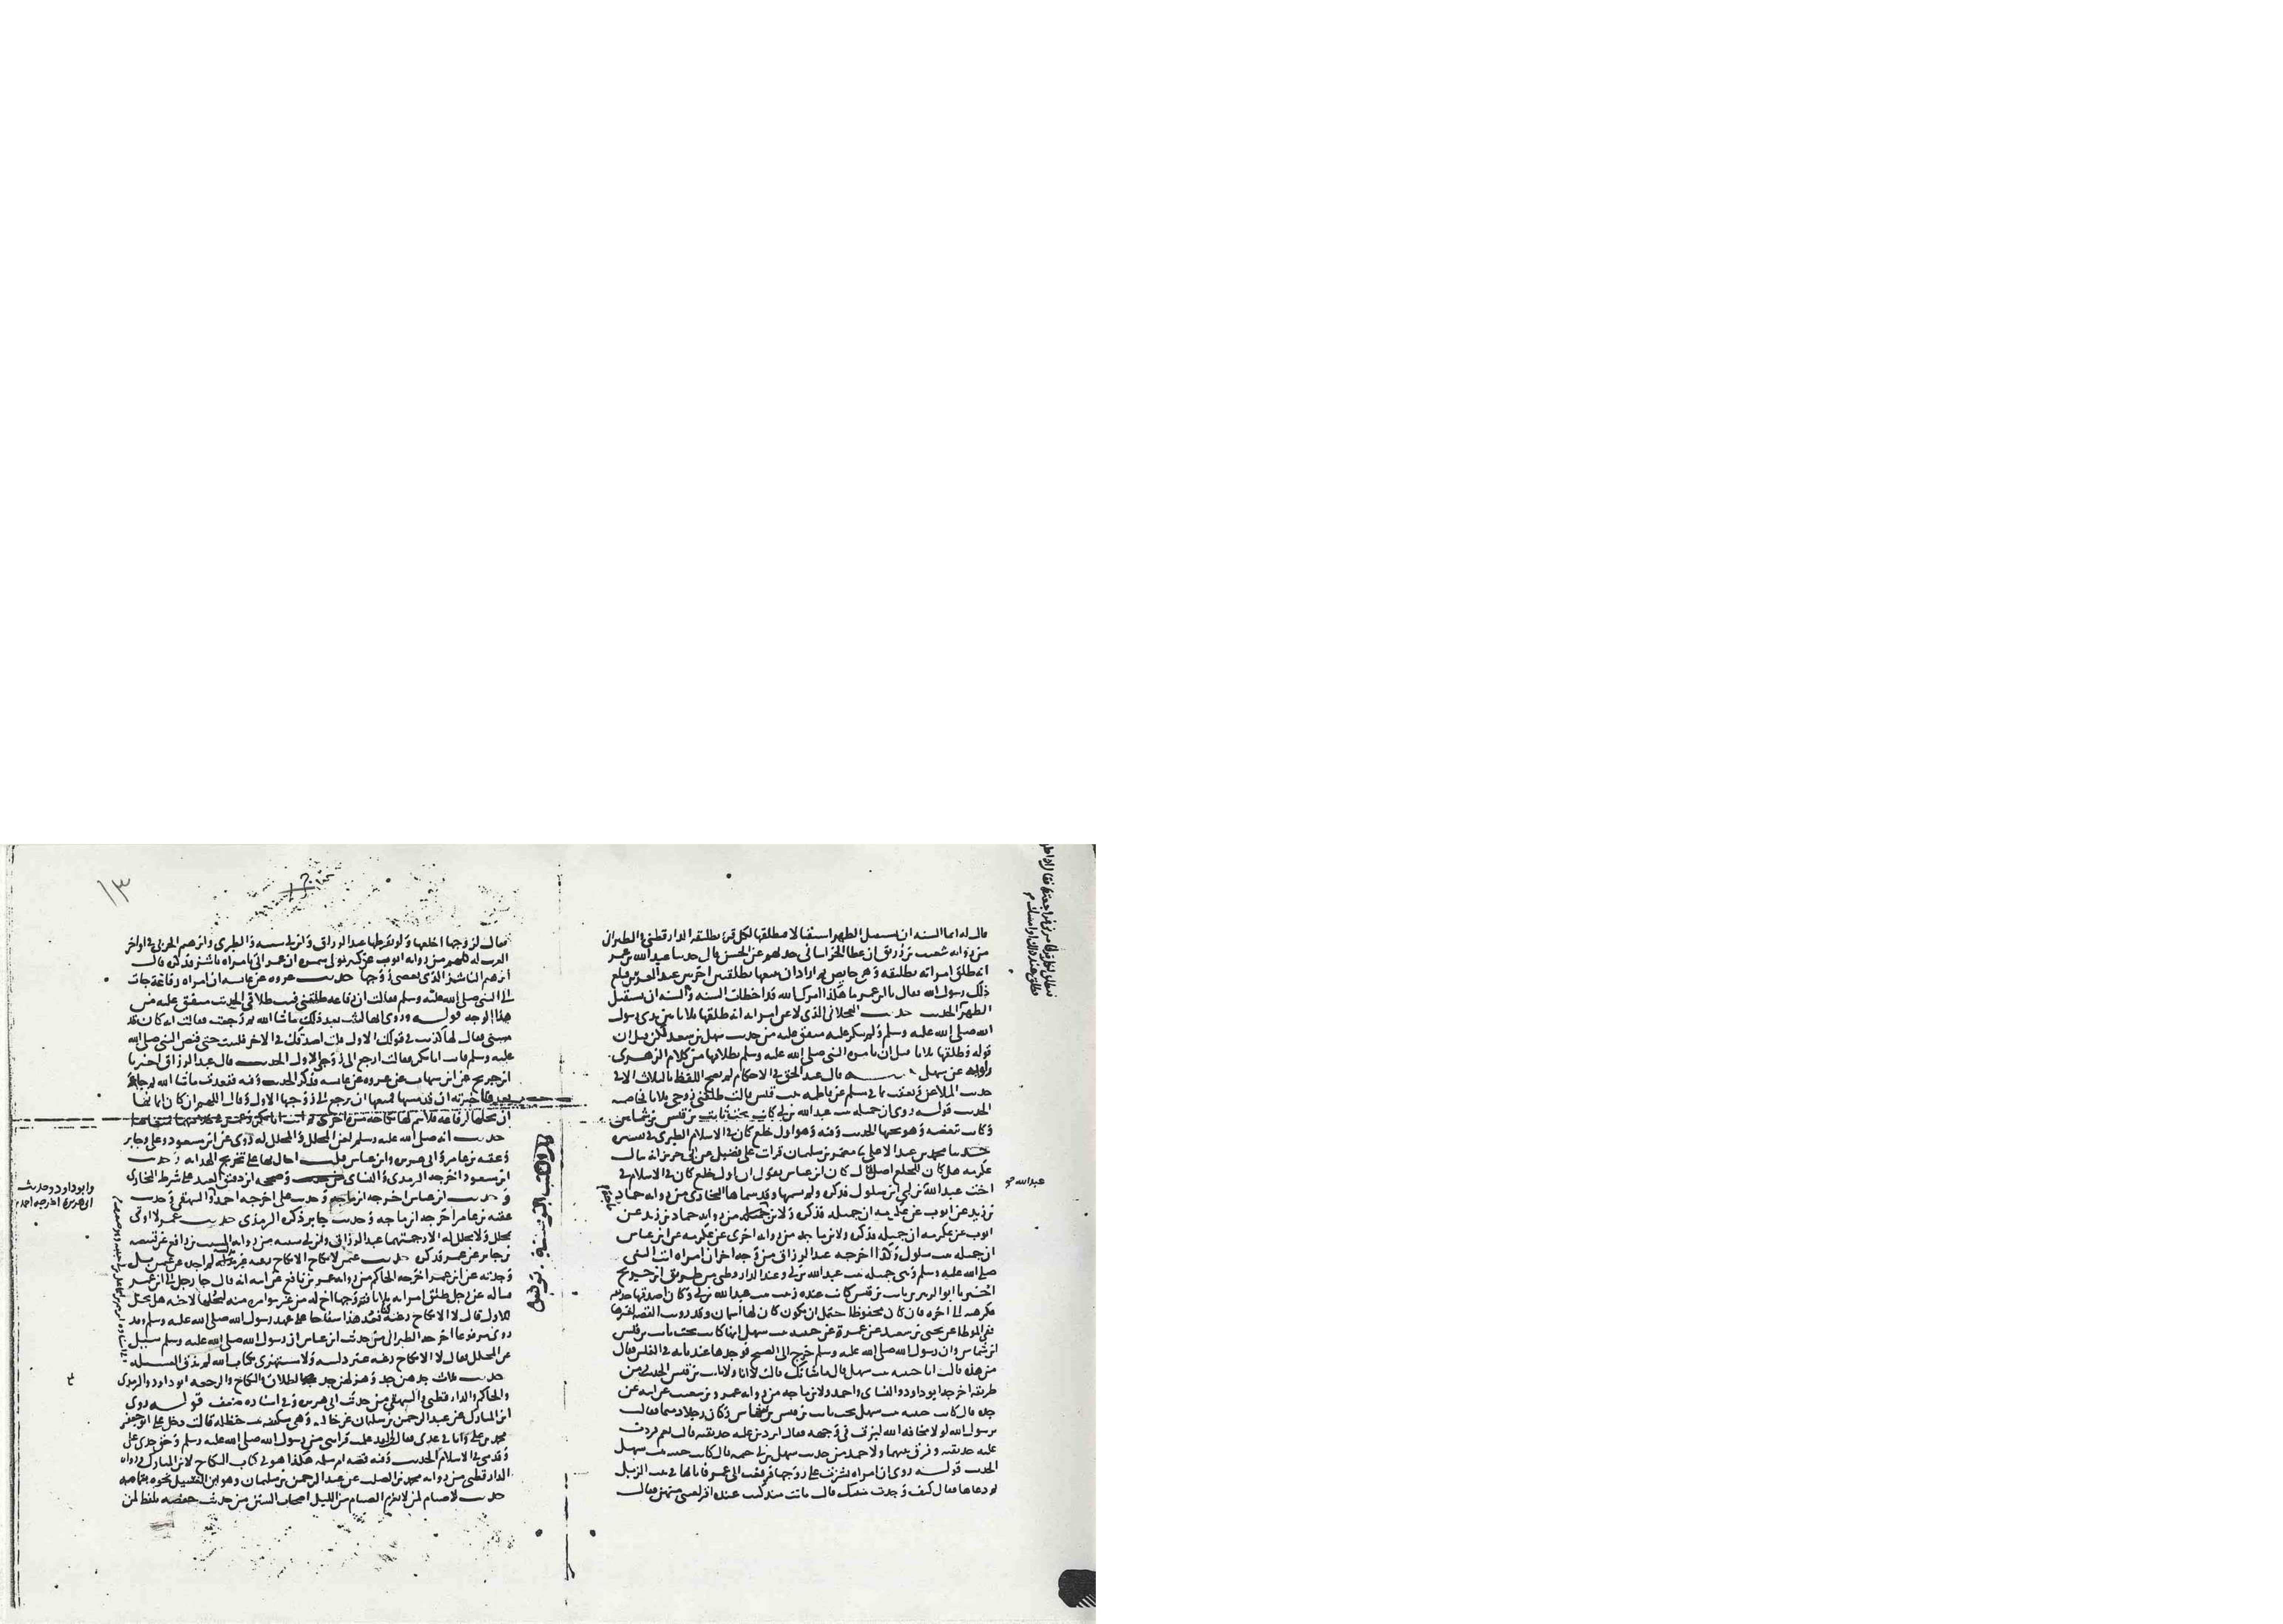 قال له انما السنه ان تستقبل الطهر استقبالا فتطلقها لكل قرء تطليقه الدارقطني والطبراني
من روايه شعيب بن زريق ان عطا الخراساني حدثهم عن الحسن قال حدثنا عبد الله بن عمر
انه طلق امراته تطليقه وهي حايض ثم اراد ان يتبعها بطلقتين اخريين عند القرين فبلغ
ذلك رسول الله فقال يا ابن عمر ما هكذا امرك الله قد اخطات السنه والسنه ان تستقبل
الطهر الحديث حديث العجلاني الذي لاعن امراته انه طلقها ثلاثا بين يدي رسول
الله صلى الله عليه وسلم ولم ينكر عليه متفق عليه من حديث سهل بن سعد لكن قيل ان
قوله وطلقها ثلاثا قبل ان يامره النبي صلى الله عليه وسلم بطلاقها من كلام الزهري
عن سهل قال عبد الحق في الاحكام لم يصح اللفظ بالثلاث الا في
حديث الملاعن وتعقب بما في مسلم عن فاطمه بنت قيس قالت طلقني زوجي ثلاثا فخاصمه
الحديث قوله روي ان جميله بنت عبد الله بن ابي كانت تحت ثابت بن قيس بن شماس
وكانت تبغضه وهو يحبها الحديث وفيه وهو اول خلع كان في الاسلام الطبري في تفسيره
حدثنا محمد بن عبد الاعلى نا معتمر بن سليمان قرات على فضيل عن ابي حريز انه سال
عكرمه هل كان للخلع اصل قال كان ابن عباس يقول ان اول خلع كان في الاسلام في
اخت عبد الله بن ابي ابن سلول فذكره ولم يسمها وقد سماها البخاري من روايه حماد
بن زيد عن ايوب عن عكرمه ان جميله فذكره ولابن من روايه حماد بن زيد عن
ايوب عن عكرمه ان جميله فذكره ولابن ماجه من روايه اخرى عن عكرمه عن ابن عباس
ان جميله بنت سلول وكذا اخرجه عبد الرزاق من وجه اخر ان امراه اتت النبي
صلى الله عليه وسلم وهي جميله بنت عبد الله بن ابي وعند الدارقطني من طريق ابن جريج
اخبرنا ابو الزبير ان ثابت بن قيس كانت عنده زينب بنت عبد الله بن ابي وكان اصدقها حديقه
فكرهته الى اخره فان كان محفوظا احتمل ان يكون كان لها اسمان وقد رويت القصه لغيرها
ففي الموطا عن يحيى بن سعيد عن عمرة عن حبيبه بنت سهل انها كانت تحت ثابت بن قيس
ابن شماس وان رسول الله صلى الله عليه وسلم خرج الى الصبح فوجدها عند بابه في الغلس فقال
من هذه قالت انا حبيبه بنت سهل قال ما شانك قالت لا انا ولا ثابت بن قيس الحديث من
طريقه اخرجه ابو داود والنساي واحمد ولابن ماجه من روايه عمرو بن شعيب عن ابيه عن
جده قال كانت حبيبه بنت سهل تحت ثابت بن قيس بن شماس وكان رجلا دميما فقالت
يرسول الله لولا مخافه الله لبزقت في وجهه فقال اتردين عليه حديقته قالت نعم فردت
عليه حديقته وفرق بينهما ولاحمد من حديث سهل بن ابي حثمه قال كانت حبيبه بنت سهل
الحديث قوله روي ان امراه نشزت على زوجها فرفعت الى عمر فاباتها في بيت الزبل
ثم دعاها فقال كيف وجدت مبيتك قالت ما بت منذ كنت عنده اقر لعيني منهن فقال
عبد الله
فقال لزوجها اخلعها ولو بقرطها عبد الرزاق وابن ابي شيبه والطبري وابرهيم الحربي في اواخر
الغريب له كلهم من روايه ايوب عن كثير مولى سمره ان عمر اتي بامراه ناشز فذكره قال
ابرهيم الناشز الذي تعصي زوجها حديث عروه عن عايشه ان امراه رفاعة جات
الى النبي صلى الله عليه وسلم فقالت ان رفاعه طلقني فبت طلاقي الحديث متفق عليه من
هذا الوجه قوله وروي انها لبثت بعد ذلك ما شا الله ثم رجعت فقالت انه كان قد
مسني فقال لها كذبت في قولك الاول فلن اصدقك في الاخر فلبثت حتى قبض النبي صلى الله
عليه وسلم فاتت ابا بكر فقالت ارجع الى زوجي الاول الحديث قال عبد الرزاق اخبرنا
ابن جريج عن ابن شهاب عن عروه عن عايشه فذكر الحديث وفيه فقعدت ما شا الله ثم جاته
فاخبرته ان قد مسها فمنعها ان ترجع الى زوجها الاول وقال اللهم ان كان ايمانها
ان يحلها لرفاعه فلا يتم لها نكاحه مره اخرى ثم اتت ابا بكر وعمر في خلافتهما فمنعاها
حديث انه صلى الله عليه وسلم لعن المحلل والمحلل له روي عن ابن مسعود وعلي وجابر
وعقبه بن عامر وابي هريره وابن عباس قلت احال بها على تخريج الهدايه وحديث
ابن مسعود اخرجه الترمذي والنساي وصححه ابن دقيق العيد على شرط البخاري
وحديث ابن عباس اخرجه ابن ماجه وحديث علي اخرجه احمد والبيهقي وحديث
عقبه بن عامر اخرجه ابن ماجه وحديث جابر ذكره الترمذي حديث عمر لا اوتى
بمحلل ولا محلل له الا رجمتهما عبد الرزاق وابن ابي شيبه من روايه المسيب بن رافع عن قبيصه
بن جابر عن عمر فذكره حديث عثمن لا نكاح الا نكاح رغبه غير مدلسه لم اجده عن عثمن بل
وجدته عن ابن عمر اخرجه الحاكم من روايه عمر بن نافع عن ابيه انه قال جا رجل الى ابن عمر
فساله عن رجل طلق امراته ثلاثا فتزوجها اخ له من غير موامره منه ليحلها لاخيه هل تحل
للاول قال لا الا نكاح رغبه كنا نعد هذا سفاحا على عهد رسول الله صلى الله عليه وسلم وقد
روي مرفوعا اخرجه الطبراني من حديث ابن عباس ان رسول الله صلى الله عليه وسلم سيل
عن المحلل فقال لا الا نكاح رغبه غير دلسه ولا مستهزئ بكتاب الله لم يذق العسيله
حديث ثلاث جدهن جد وهزلهن جد الطلاق والنكاح والرجعه ابو داود والترمذي
والحاكم والدارقطني والبيهقي من حديث ابي هريره وفي اسناده ضعف قوله روى
ابن المبارك عن عبد الرحمن بن سليمان عن خالته وهي سكينه بنت حنظله قالت دخل علي ابو جعفر
محمد بن علي وانا في عدتي فقال قد علمت قرابتي من رسول الله صلى الله عليه وسلم وحق جدي علي
وقدمي في الاسلام الحديث وفيه قصه ام سلمه هكذا هو في كتاب النكاح لابن المبارك في روايه
الدارقطني من روايه محمد بن الصلت عن عبد الرحمن بن سليمان وهو ابن الغسيل نحوه بتمامه
حديث لا صيام لمن لم يعزم الصيام من الليل اصحاب السنن من حديث حفصه بلفظ لمن
وابو داود وحديث
ابي هريره اخرجه احمد
١٣